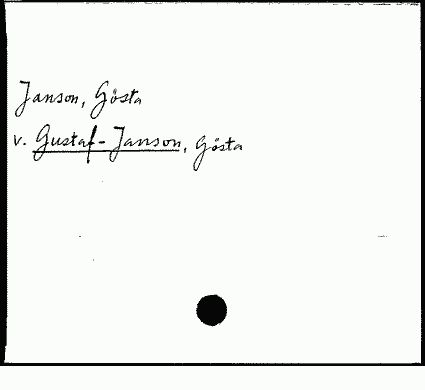 Janson, Gösta
v. Gustaf-Janson, Gösta